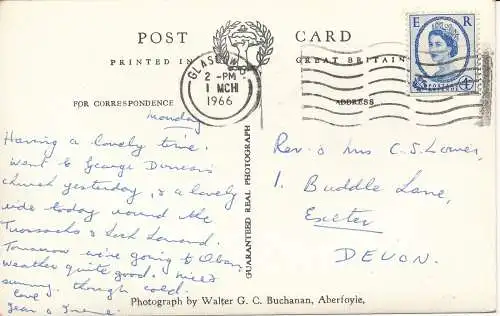 POST CARD
PRINTED IN GREAT BRITAIN
FOR CORRESPONDENCE
ADDRESS
GLASGOW
2 - PM
1 MCH
1966
E R
POSTAGE
4D
Monday
Having a lovely time.
Went to George Duncan's
church yesterday, & a lovely
ride today round the
Trossachs & Loch Lomond.
Tomorrow we're going to Oban,
weather quite good. mild
sunny though cold.
Love
Jean & Irene
GUARANTEED REAL PHOTOGRAPH
Rev. & Mrs C. S. Lower,
1. Buddle Lane,
Exeter
DEVON.
Photograph by Walter G. C. Buchanan, Aberfoyle,